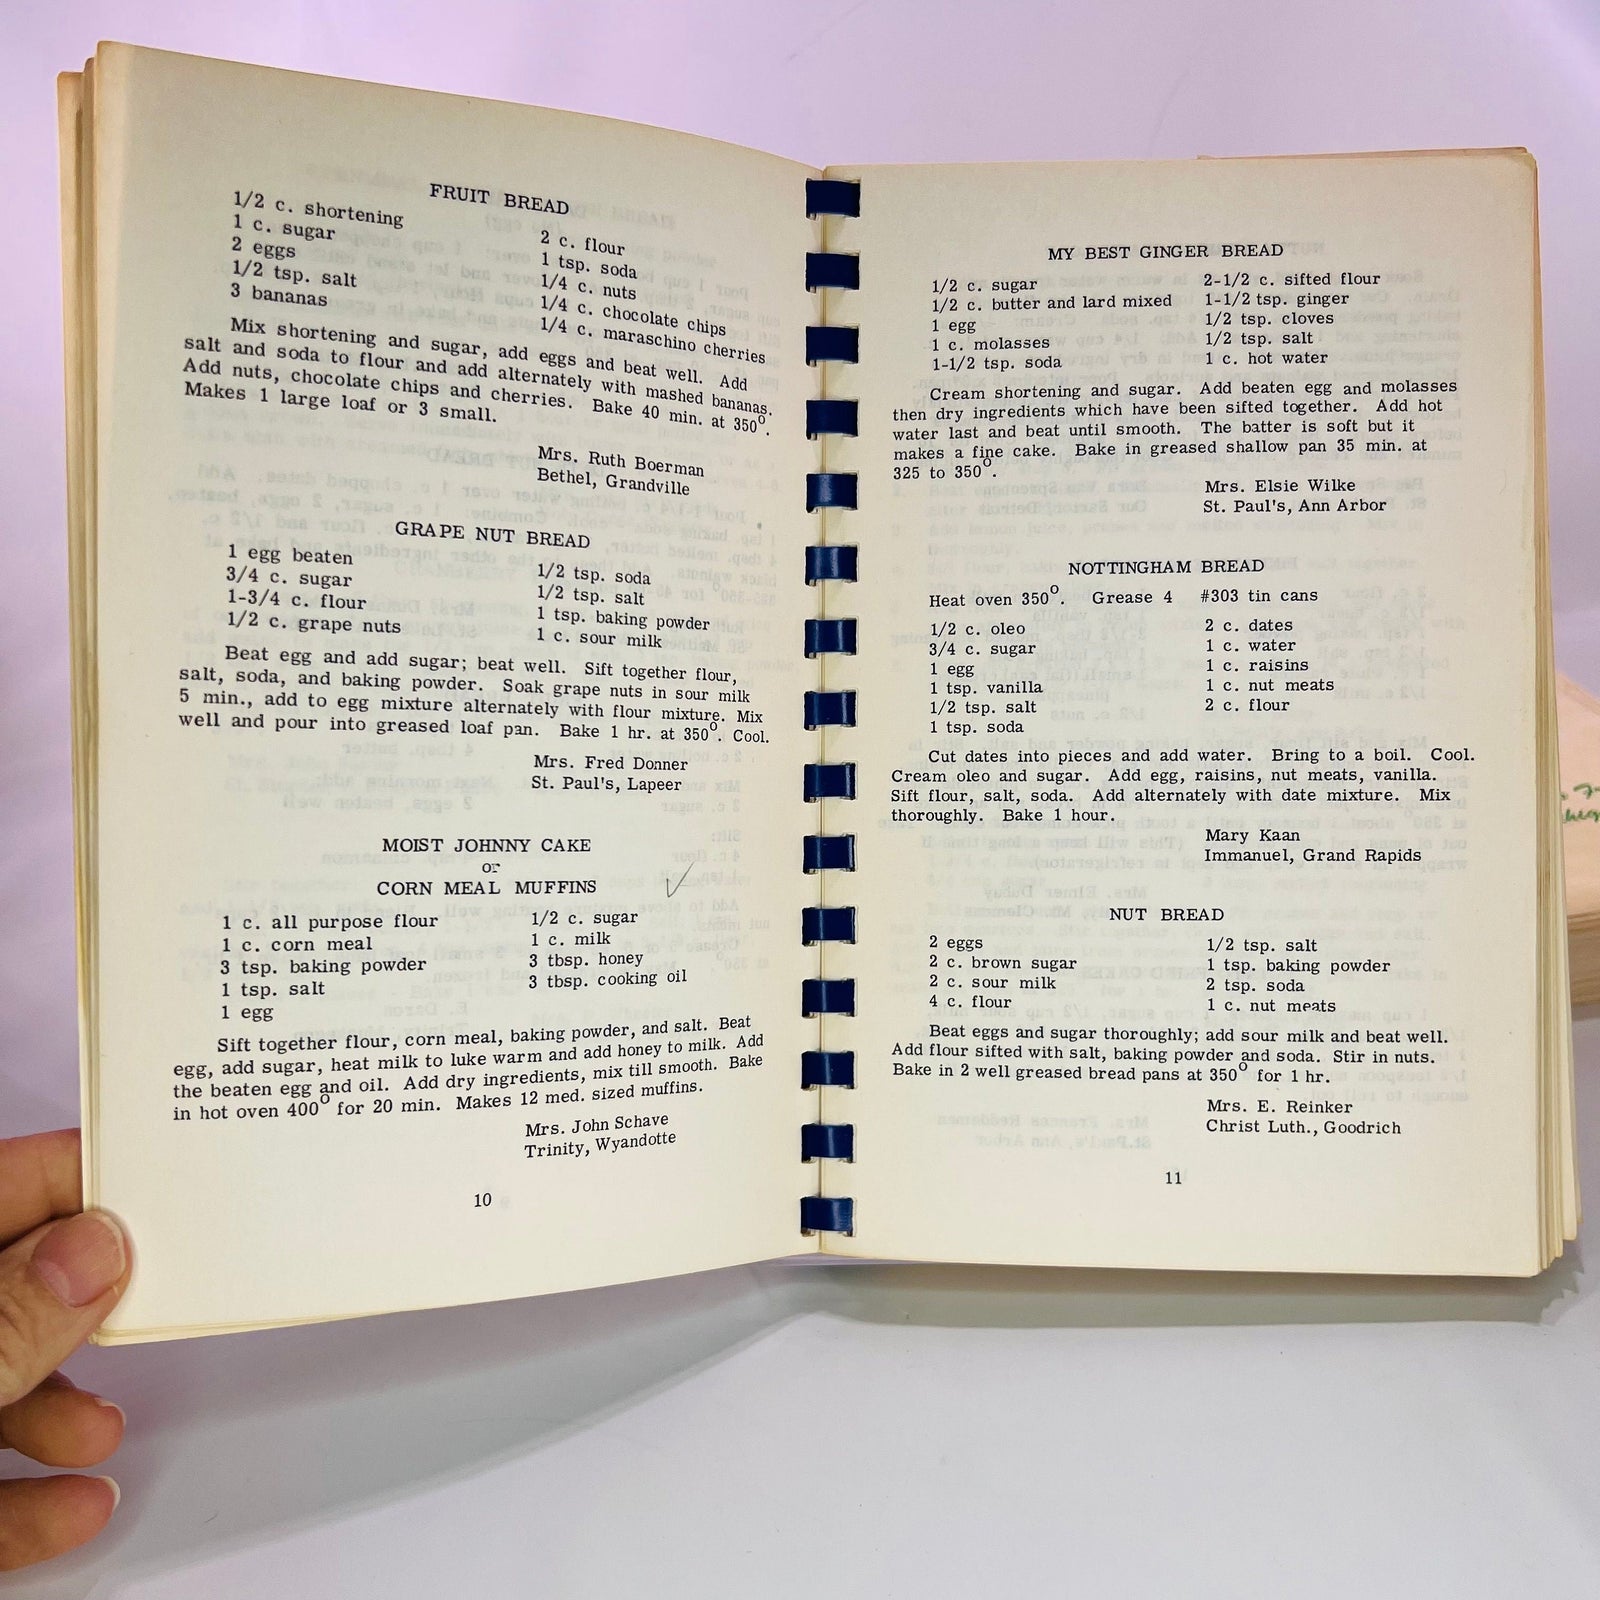 FRUIT BREAD
1/2 c. shortening
1 c. sugar
2 eggs
1/2 tsp. salt
3 bananas
2 c. flour
1 tsp. soda
1/4 c. nuts
1/4 c. chocolate chips
1/4 c. maraschino cherries
Mix shortening and sugar, add eggs and beat well. Add
salt and soda to flour and add alternately with mashed bananas.
Add nuts, chocolate chips and cherries. Bake 40 min. at 350°.
Makes 1 large loaf or 3 small.
Mrs. Ruth Boerman
Bethel, Grandville
GRAPE NUT BREAD
1 egg beaten
3/4 c. sugar
1-3/4 c. flour
1/2 c. grape nuts
1/2 tsp. soda
1/2 tsp. salt
1 tsp. baking powder
1 c. sour milk
Beat egg and add sugar; beat well. Sift together flour,
salt, soda, and baking powder. Soak grape nuts in sour milk
5 min., add to egg mixture alternately with flour mixture. Mix
well and pour into greased loaf pan. Bake 1 hr. at 350°. Cool.
Mrs. Fred Donner
St. Paul's, Lapeer
MOIST JOHNNY CAKE
or
CORN MEAL MUFFINS
1 c. all purpose flour
1 c. corn meal
3 tsp. baking powder
1 tsp. salt
1 egg
1/2 c. sugar
1 c. milk
3 tbsp. honey
3 tbsp. cooking oil
Sift together flour, corn meal, baking powder, and salt. Beat
egg, add sugar, heat milk to luke warm and add honey to milk. Add
the beaten egg and oil. Add dry ingredients, mix till smooth. Bake
in hot oven 400° for 20 min. Makes 12 med. sized muffins.
Mrs. John Schave
Trinity, Wyandotte
10
MY BEST GINGER BREAD
1/2 c. sugar
1/2 c. butter and lard mixed
1 egg
1 c. molasses
1-1/2 tsp. soda
2-1/2 c. sifted flour
1-1/2 tsp. ginger
1/2 tsp. cloves
1/2 tsp. salt
1 c. hot water
Cream shortening and sugar. Add beaten egg and molasses
then dry ingredients which have been sifted together. Add hot
water last and beat until smooth. The batter is soft but it
makes a fine cake. Bake in greased shallow pan 35 min. at
325 to 350°.
Mrs. Elsie Wilke
St. Paul's, Ann Arbor
NOTTINGHAM BREAD
Heat oven 350°. Grease 4 #303 tin cans
1/2 c. oleo
3/4 c. sugar
1 egg
1 tsp. vanilla
1/2 tsp. salt
1 tsp. soda
2 c. dates
1 c. water
1 c. raisins
1 c. nut meats
2 c. flour
Cut dates into pieces and add water. Bring to a boil. Cool.
Cream oleo and sugar. Add egg, raisins, nut meats, vanilla.
Sift flour, salt, soda. Add alternately with date mixture. Mix
thoroughly. Bake 1 hour.
Mary Kaan
Immanuel, Grand Rapids
NUT BREAD
2 eggs
2 c. brown sugar
2 c. sour milk
4 c. flour
1/2 tsp. salt
1 tsp. baking powder
2 tsp. soda
1 c. nut meats
Beat eggs and sugar thoroughly; add sour milk and beat well.
Add flour sifted with salt, baking powder and soda. Stir in nuts.
Bake in 2 well greased bread pans at 350° for 1 hr.
Mrs. E. Reinker
Christ Luth., Goodrich
11